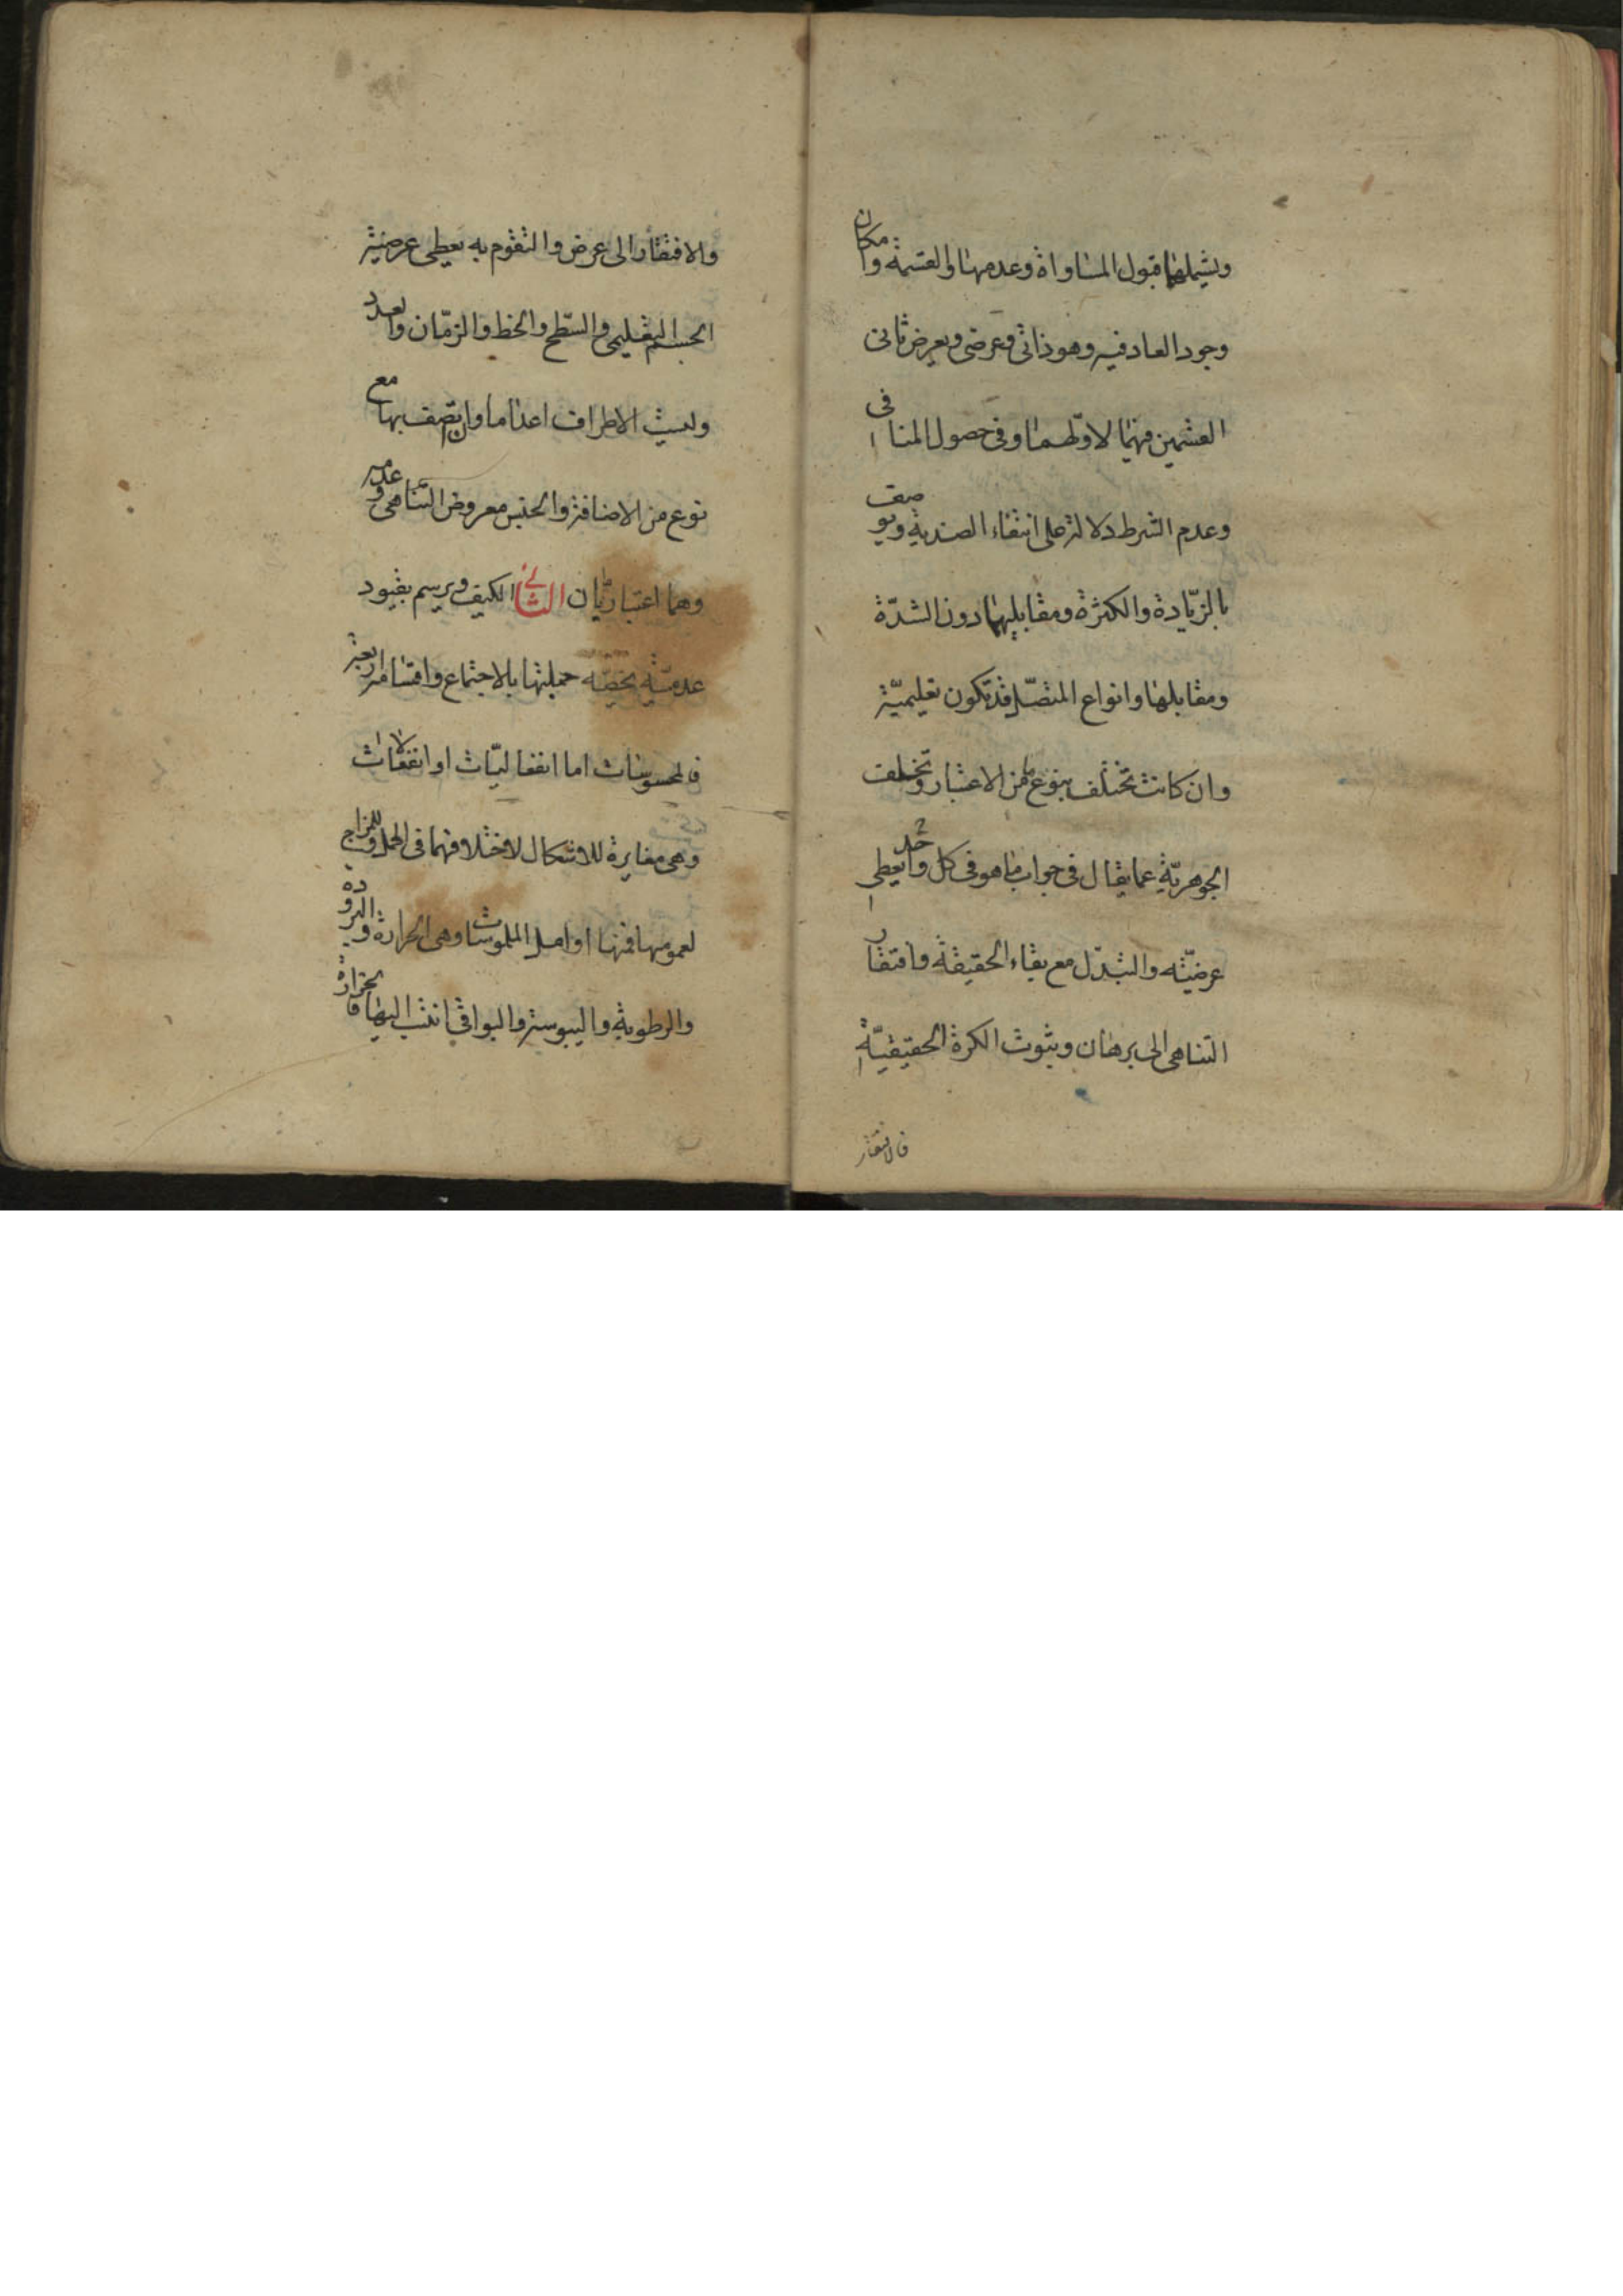 ويشملهما قبول المساواة وعدمها والقسمة وامكان
وجود العاد فيه وهو ذاتى وعرضى ويعرض ثانى
القسمين فيهما لاولهما وفى حصول المنافى
وعدم الشرط دلالة على انتفاء الضدية ويوصف
بالزيادة والكثرة ومقابليهما دون الشدة
ومقابلها وانواع المتصل قد تكون تعليمية
وان كانت تختلف بنوع ما من الاعتبار وتخلف
الجوهرية عما يقال فى جواب ما هو فى كل واحد يعطى
عرضيته والتبدل مع بقاء الحقيقة وافتقار
التناهى الى برهان وثبوت الكرة الحقيقية
فالافتقار
والافتقار الى عرض والتقوم به يعطى عرضية
الجسم التعليمى والسطح والخط والزمان والعدد
وليست الاطراف اعداما وان تصف بها مع
نوع من الاضافة والجنس معروض التناهى وعدمه
وهما اعتباريان الثانى الكيف ويرسم بقيود
عدمية يخصه جملتها بالاجتماع واقسامه اربعة
فالمحسوسات اما انفعاليات او انفعالات
وهى مغايرة للاشكال لاختلافهما فى الحمل وللمزاج
لعمومها فمنها اوايل الملموسات وهى الحرارة والبرودة
والرطوبة واليبوسة والبواقى انتسب اليها فالحرارة